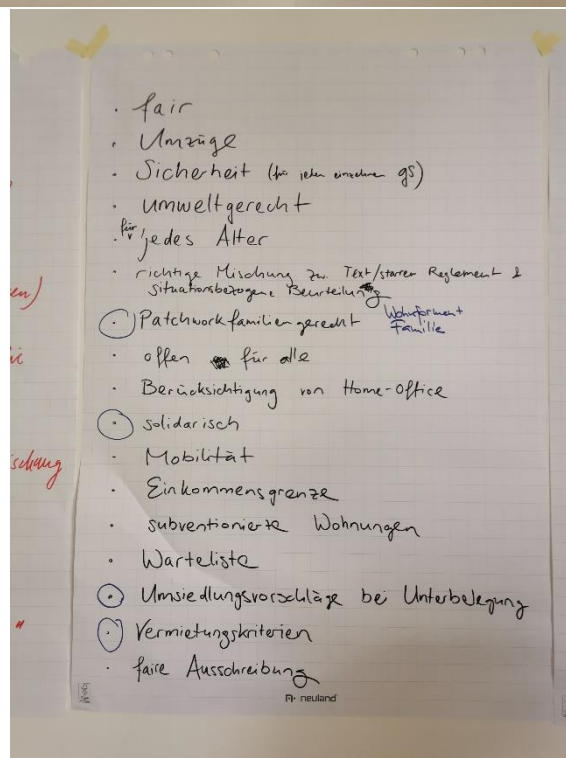 · fair
· Umzüge
· Sicherheit (für jeden einzelnen gs)
· umweltgerecht
· für jedes Alter
· richtige Mischung zw. Text/starren Reglement &
situationsbezogene Beurteilung
· Patchworkfamiliengerecht Wohnformen +
Familie
· offen für alle
· Berücksichtigung von Home-Office
· solidarisch
· Mobilität
· Einkommensgrenze
· subventionierte Wohnungen
· Warteliste
· Umsiedlungsvorschläge bei Unterbelegung
· Vermietungskriterien
· faire Ausschreibung
neuland
en)
schung
"